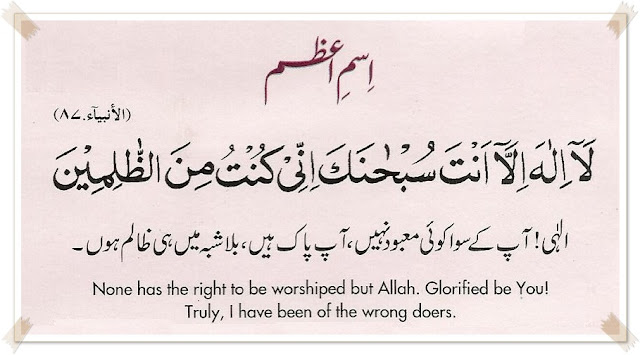 اِسمِ اعظم
(الأنبیآء.٨٧)
لَآ اِلٰهَ اِلَّآ اَنْتَ سُبْحٰنَكَ اِنِّیْ كُنْتُ مِنَ الظّٰلِمِیْنَ
الٰہی! آپ کے سوا کوئی معبود نہیں، آپ پاک ہیں، بلاشبہ میں ہی ظالم ہوں۔
None has the right to be worshiped but Allah. Glorified be You!
Truly, I have been of the wrong doers.